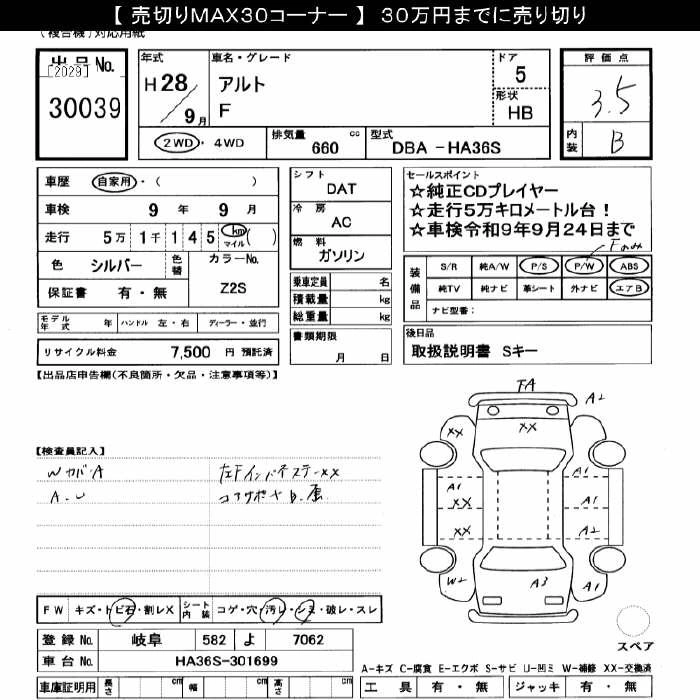 【 売切りMAX30コーナー 】 30万円までに売り切り
(複合機)対応用紙
出品No.
[2029]
30039
年式
H 28
9月
車名・グレード
アルト
F
ドア
5
形状
HB
評価点
3.5
内装
B
2WD・4WD
排気量
660 cc
型式
DBA -HA36S
車歴 自家用・( )
車検 9 年 9 月
走行 5万 1千 1 4 5 km マイル ( )
色 シルバー 色替 カラーNo.
Z2S
保証書 有・無
シフト
DAT
冷房
AC
燃料
ガソリン
乗車定員 名
積載量 kg
総重量 kg
書類期限
月 日
セールスポイント
☆純正CDプレイヤー
☆走行5万キロメートル台!
☆車検令和9年9月24日まで
Fのみ
装備品
S/R 純A/W P/S P/W ABS
純TV 純ナビ 革シート 外ナビ エアB
ナビ型番:
後日品
取扱説明書 Sキー
モデル年式 年 ハンドル 左・右 ディーラー・並行
リサイクル料金 7,500 円 預託済
【出品店申告欄(不良箇所・欠品・注意事項等)】
【検査員記入】
WカバA
A.U
左Fインパネステーxx
コアサポヤB.戻
FA
A2
XX
XX
A1
A1
XX
XX
A2
W2
A3
A1
スペア
FW キズ・トビ石・割レX シート内装 コゲ・穴・汚レ・シミ・破レ・スレ
登録No. 岐阜 582 よ 7062
車台No. HA36S-301699
車庫証明用 長さ cm 幅 cm 高さ cm
A-キズ C-腐食 E-エクボ S-サビ U-凹ミ W-補修 XX-交換済
工具 有・無 ジャッキ 有・無